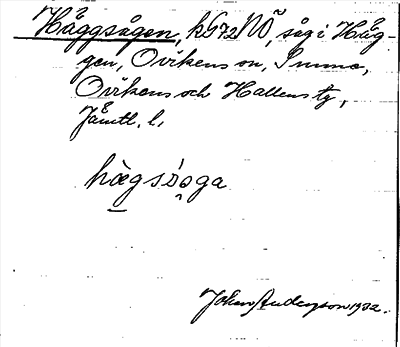 Häggsågen, kG72NÖ, såg i Häg-
gen, Ovikens sn, Immo,
Ovikens och Hallens tg,
Jämtl. l.
hägsoga
Johan Anderson 1932.